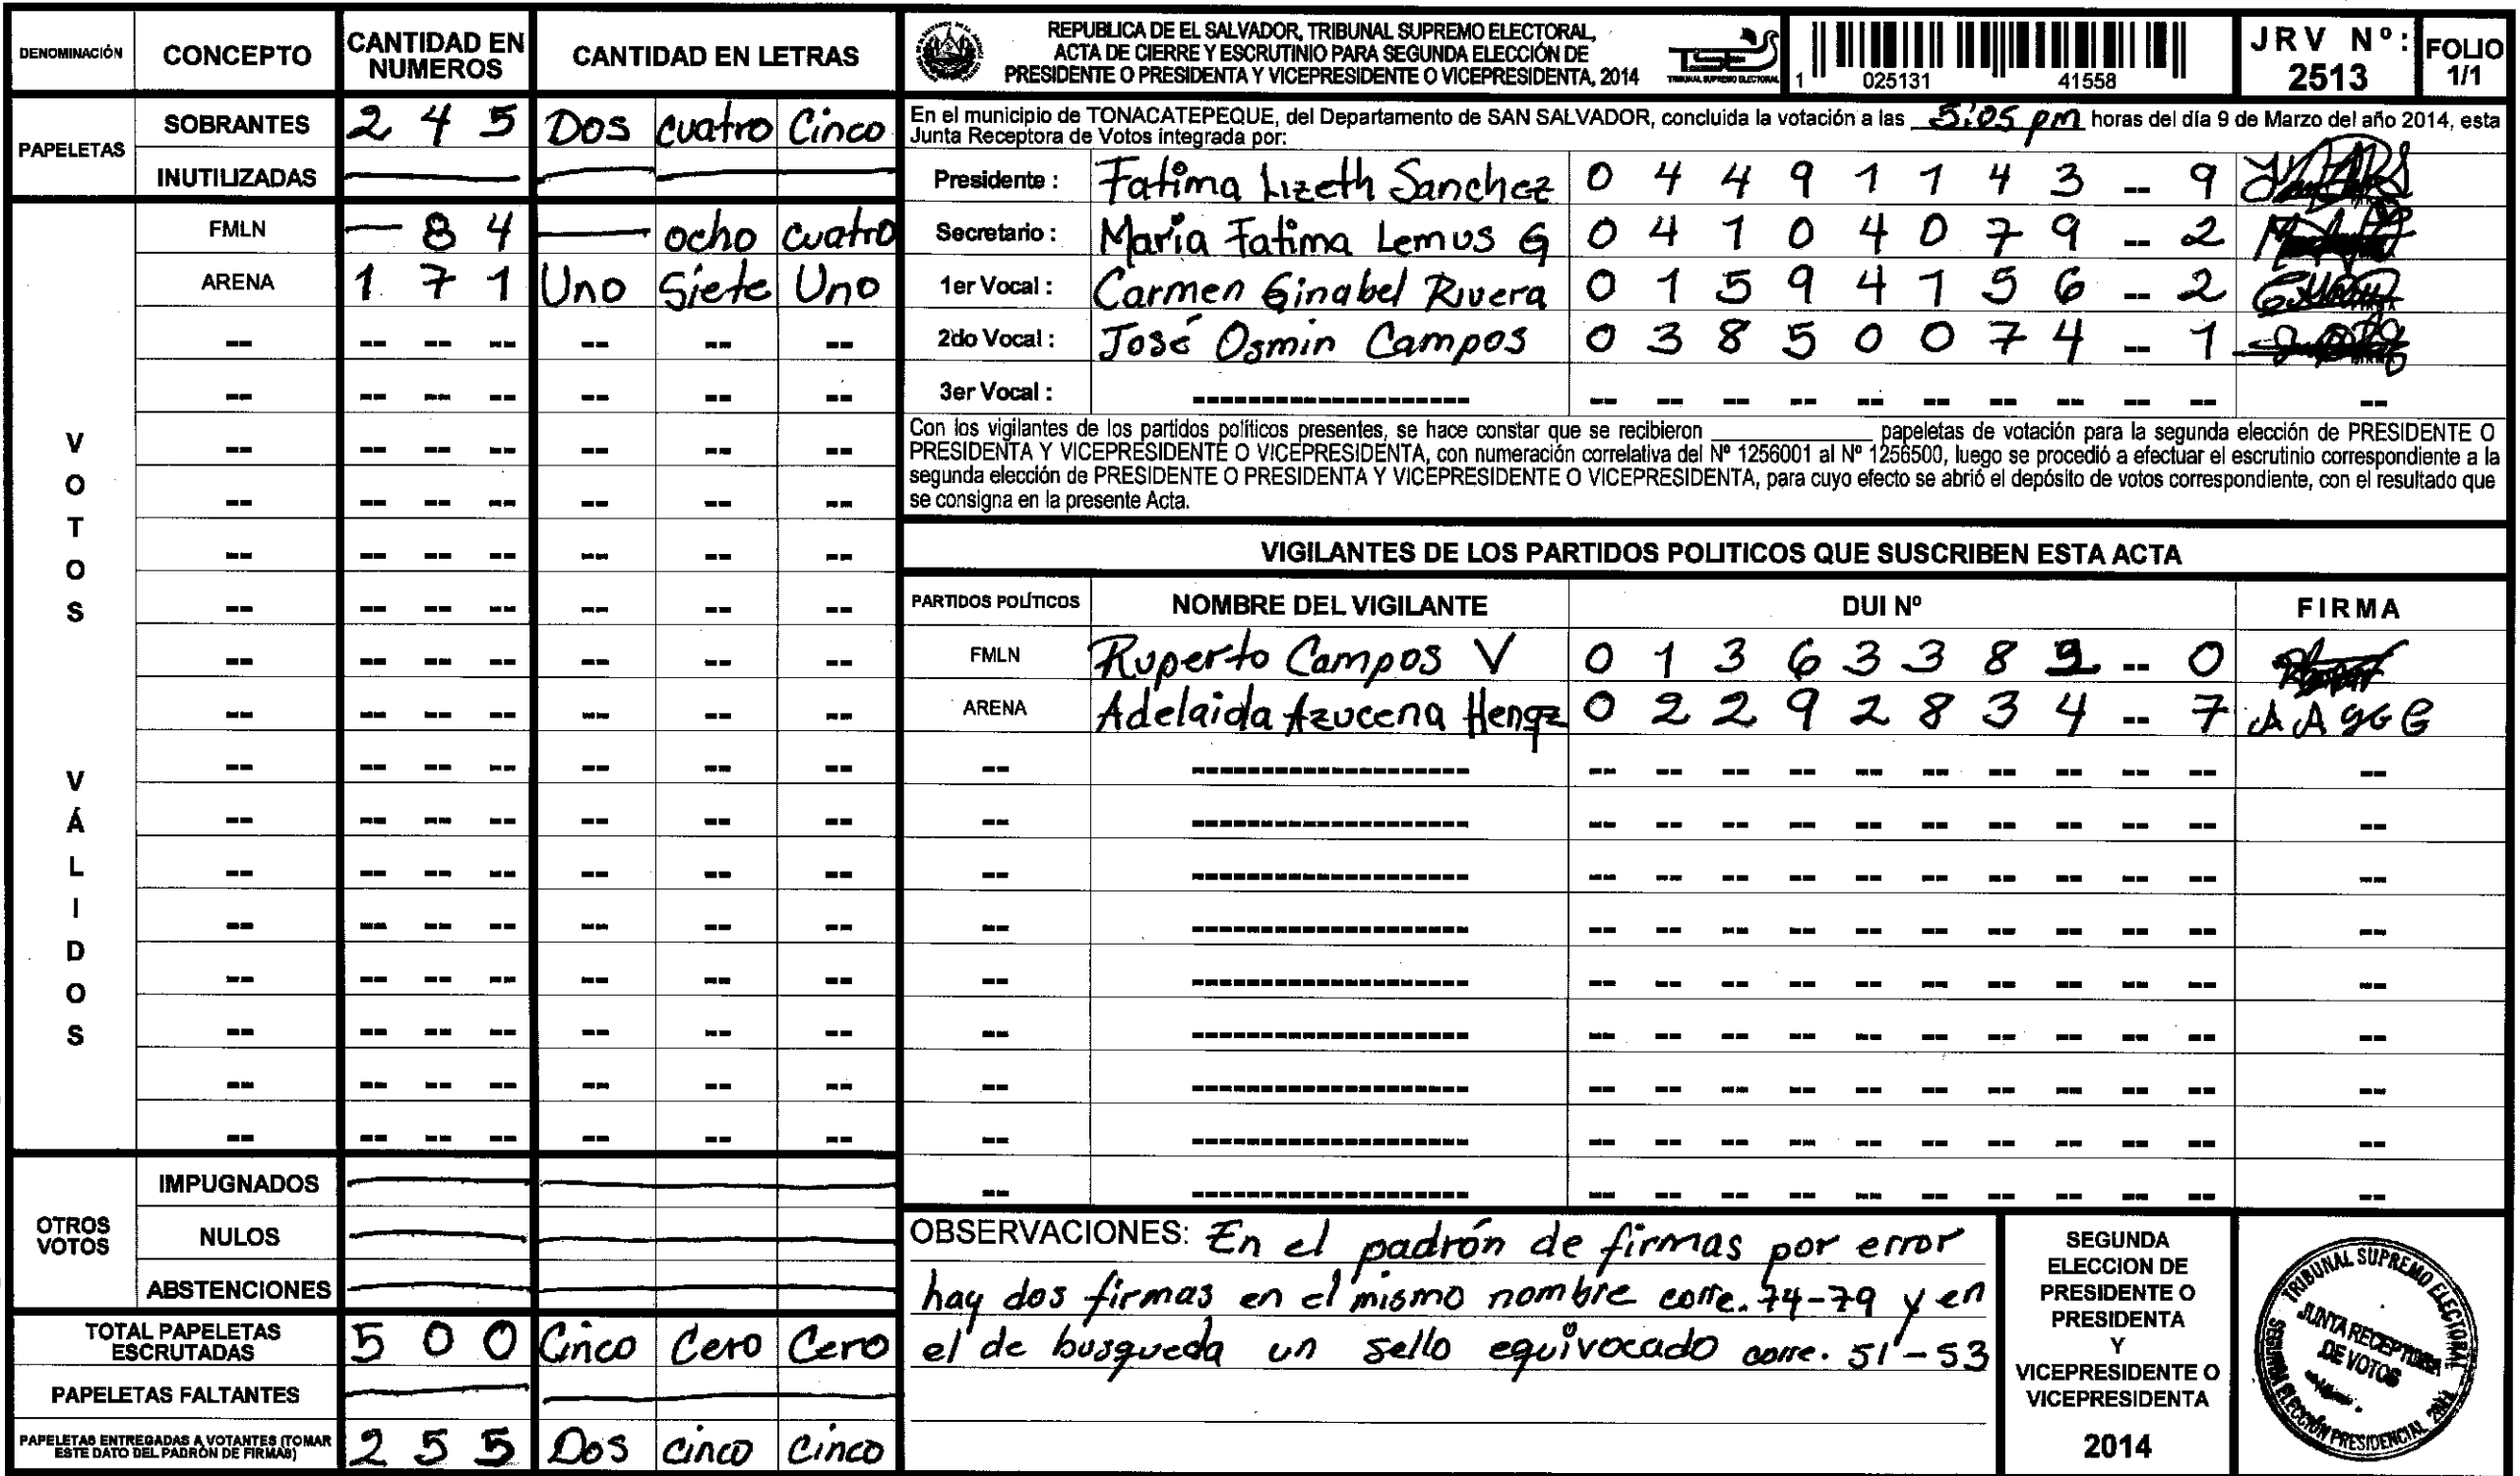 DENOMINACIÓN CONCEPTO CANTIDAD EN NUMEROS CANTIDAD EN LETRAS
PAPELETAS
SOBRANTES 2 4 5 Dos cuatro Cinco
INUTILIZADAS
VOTOS VÁLIDOS
FMLN — 8 4 — ocho cuatro
ARENA 1 7 1 Uno Siete Uno
OTROS VOTOS
IMPUGNADOS
NULOS
ABSTENCIONES
TOTAL PAPELETAS ESCRUTADAS 5 0 0 Cinco Cero Cero
PAPELETAS FALTANTES
PAPELETAS ENTREGADAS A VOTANTES (TOMAR ESTE DATO DEL PADRÓN DE FIRMAS) 2 5 5 Dos cinco cinco
REPUBLICA DE EL SALVADOR, TRIBUNAL SUPREMO ELECTORAL,
ACTA DE CIERRE Y ESCRUTINIO PARA SEGUNDA ELECCIÓN DE
PRESIDENTE O PRESIDENTA Y VICEPRESIDENTE O VICEPRESIDENTA, 2014
TSE
TRIBUNAL SUPREMO ELECTORAL
1 025131 41558
JRV Nº: 2513
FOLIO 1/1
En el municipio de TONACATEPEQUE, del Departamento de SAN SALVADOR, concluida la votación a las 5:05 pm horas del día 9 de Marzo del año 2014, esta
Junta Receptora de Votos integrada por:
Presidente : Fatima Lizeth Sanchez 0 4 4 9 1 1 4 3 -- 9
Secretario : Maria Fatima Lemus G 0 4 1 0 4 0 7 9 -- 2
1er Vocal : Carmen Ginabel Rivera 0 1 5 9 4 1 5 6 -- 2
2do Vocal : José Osmin Campos 0 3 8 5 0 0 7 4 -- 1
3er Vocal :
Con los vigilantes de los partidos políticos presentes, se hace constar que se recibieron ________ papeletas de votación para la segunda elección de PRESIDENTE O
PRESIDENTA Y VICEPRESIDENTE O VICEPRESIDENTA, con numeración correlativa del Nº 1256001 al Nº 1256500, luego se procedió a efectuar el escrutinio correspondiente a la
segunda elección de PRESIDENTE O PRESIDENTA Y VICEPRESIDENTE O VICEPRESIDENTA, para cuyo efecto se abrió el depósito de votos correspondiente, con el resultado que
se consigna en la presente Acta.
VIGILANTES DE LOS PARTIDOS POLITICOS QUE SUSCRIBEN ESTA ACTA
PARTIDOS POLÍTICOS NOMBRE DEL VIGILANTE DUI Nº FIRMA
FMLN Ruperto Campos V 0 1 3 6 3 3 8 9 -- 0
ARENA Adelaida Azucena 0 2 2 9 2 8 3 4 -- 7
OBSERVACIONES: En el padrón de firmas por error
hay dos firmas en el mismo nombre corre. 74-79 y en
el de busqueda un sello equivocado corre. 51-53
SEGUNDA
ELECCION DE
PRESIDENTE O
PRESIDENTA
Y
VICEPRESIDENTE O
VICEPRESIDENTA
2014
TRIBUNAL SUPREMO ELECTORAL
JUNTA RECEPTORA
DE VOTOS
SEGUNDA ELECCIÓN PRESIDENCIAL 2014